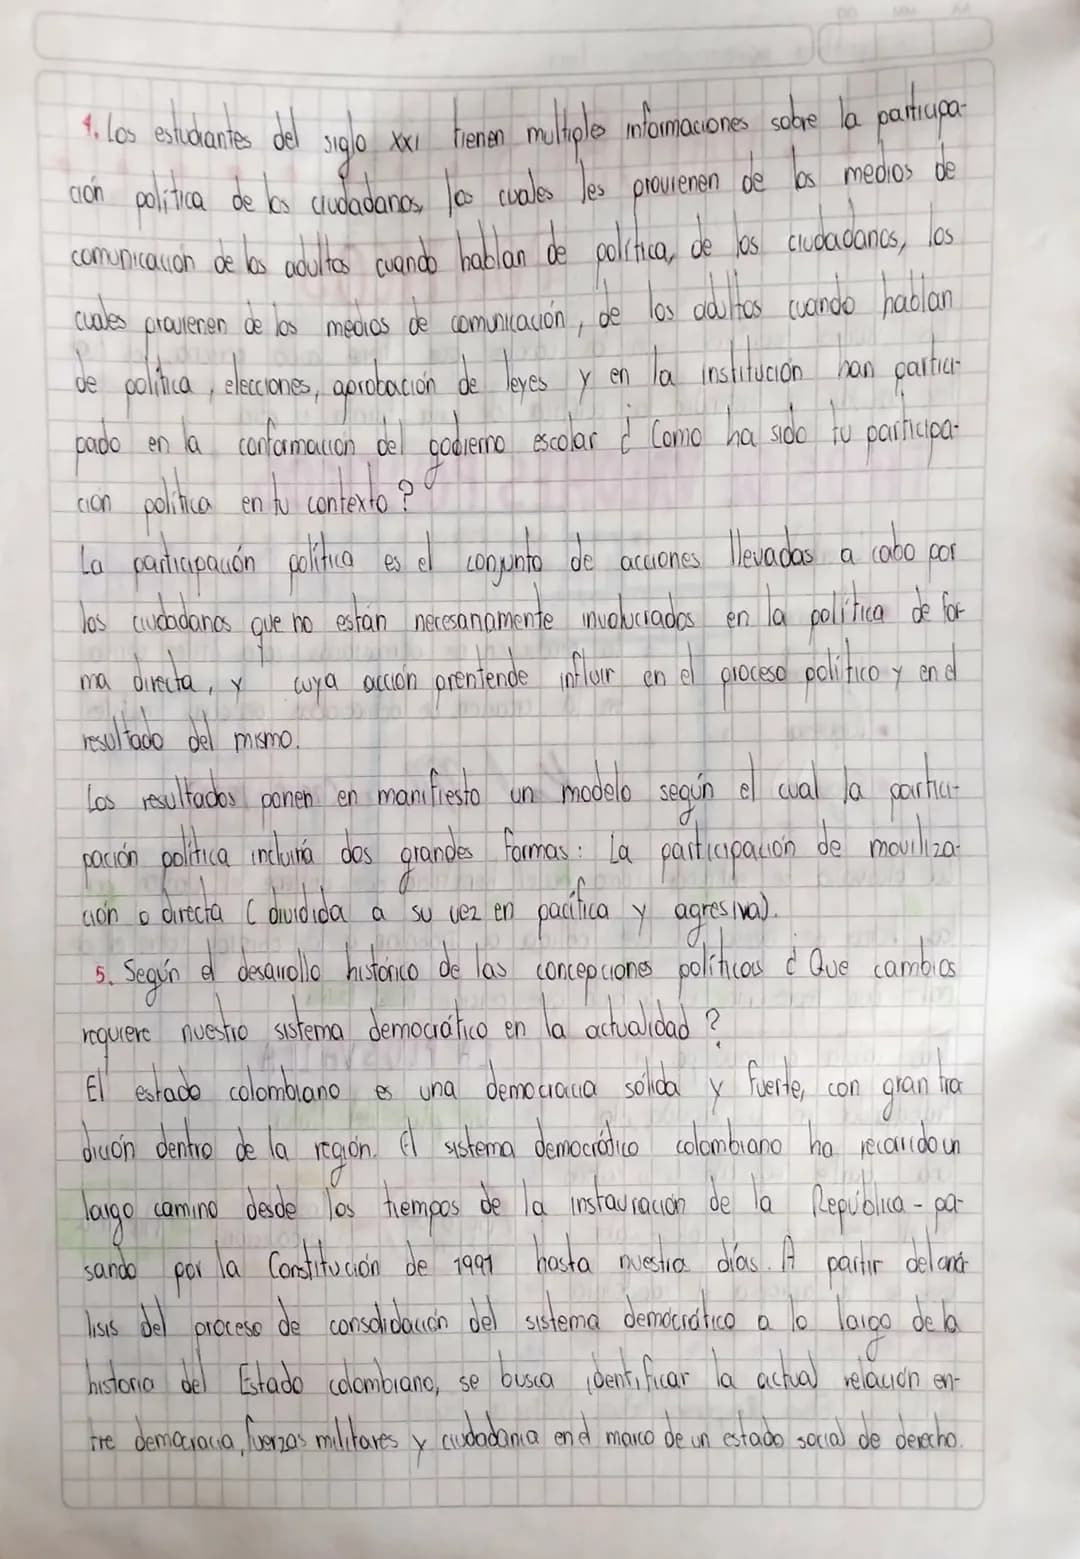 4. Los estudiantes del siglo XXI tienen multiples informaciones sobre la participa-
ción política de los ciudadanos, los cuales les provienen de los medios de
comunicación de los adultos cuando hablan de política, de los ciudadanos, los
cuales provienen de los medios de comunicación, de los adultos cuando hablan
de política, elecciones, aprobación de leyes y en la institución han partici-
pado en la conformación del gobierno escolar ¿ Como ha sido tu participa-
ción política en tu contexto?
La participación política es el conjunto de acciones llevadas a cabo por
los ciudadanos que no están necesariamente involucrados en la política de for-
ma directa, y cuya acción prentende influir en el proceso político y en el
resultado del mismo.
Los resultados ponen en manifiesto un modelo según el cual la partici-
pación política incluirá dos grandes formas: La participación de moviliza-
ción o directa (dividida a su vez en pacífica y agresiva).
5. Según el desarrollo histórico de las concepciones políticas ¿ Que cambios
requiere nuestro sistema democrático en la actualidad?
El estado colombiano es una democracia sólida y fuerte, con gran tra
dición dentro de la región. El sistema democrático colombiano ha recorrido un
largo camino desde los tiempos de la instauración de la República - pa-
sando por la Constitución de 1991 hasta nuestra días. A partir del aná-
lisis del proceso de consolidación del sistema democrático a lo largo de la
historia del Estado colombiano, se busca identificar la actual relación en-
tre democracia, fuerzas militares y ciudadanía en el marco de un estado social de derecho.